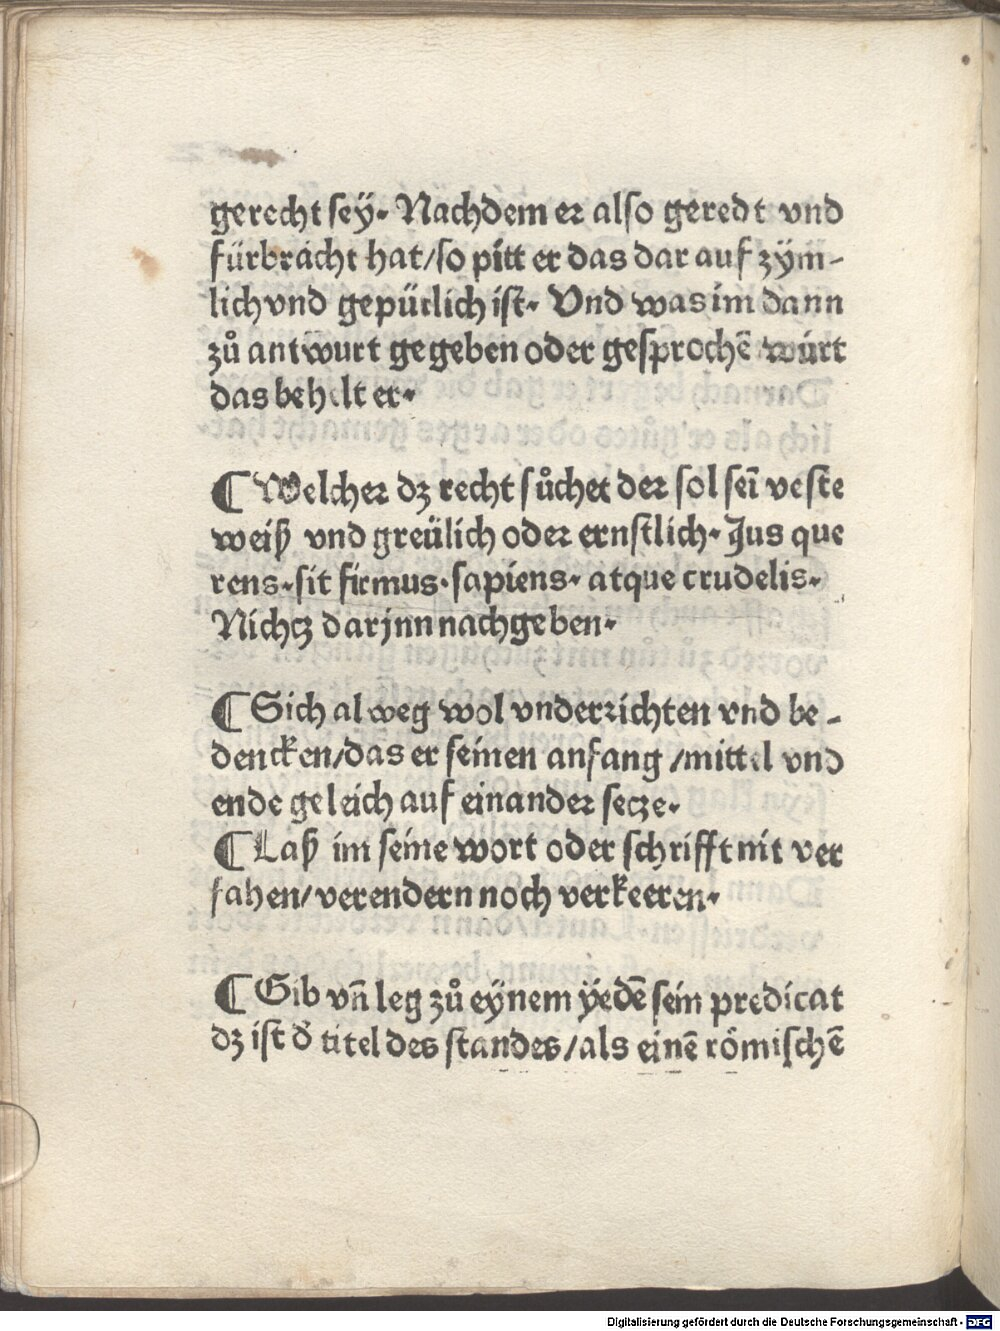 gerecht sey. Nachdem er also geredt vnd
fürbracht hat/so pitt er das dar auf zÿm-
lich vnd gepürlich ist. Vnd was im dann
zů antwurt gegeben oder gesprochē würt
das behelt er.
¶ Welcher dz recht sůchet der sol sei͞ veste
weiß vnd greülich oder ernstlich. Jus que
rens. sit firmus. sapiens. atque crudelis.
Nichcz darjnn nachgeben.
¶ Sich alweg wol vnderrichten vnd be-
dencken/das er seinen anfang /mittel vnd
ende geleich auf einander secze.
¶ Laß im seine wort oder schrifft nit ver
fahen/verendern noch verkeeren.
¶ Gib vn̄ leg zů eynem ÿedē sein predicat
dz ist d' titel des standes/als einē römischē
Digitalisierung gefördert durch die Deutsche Forschungsgemeinschaft - DFG